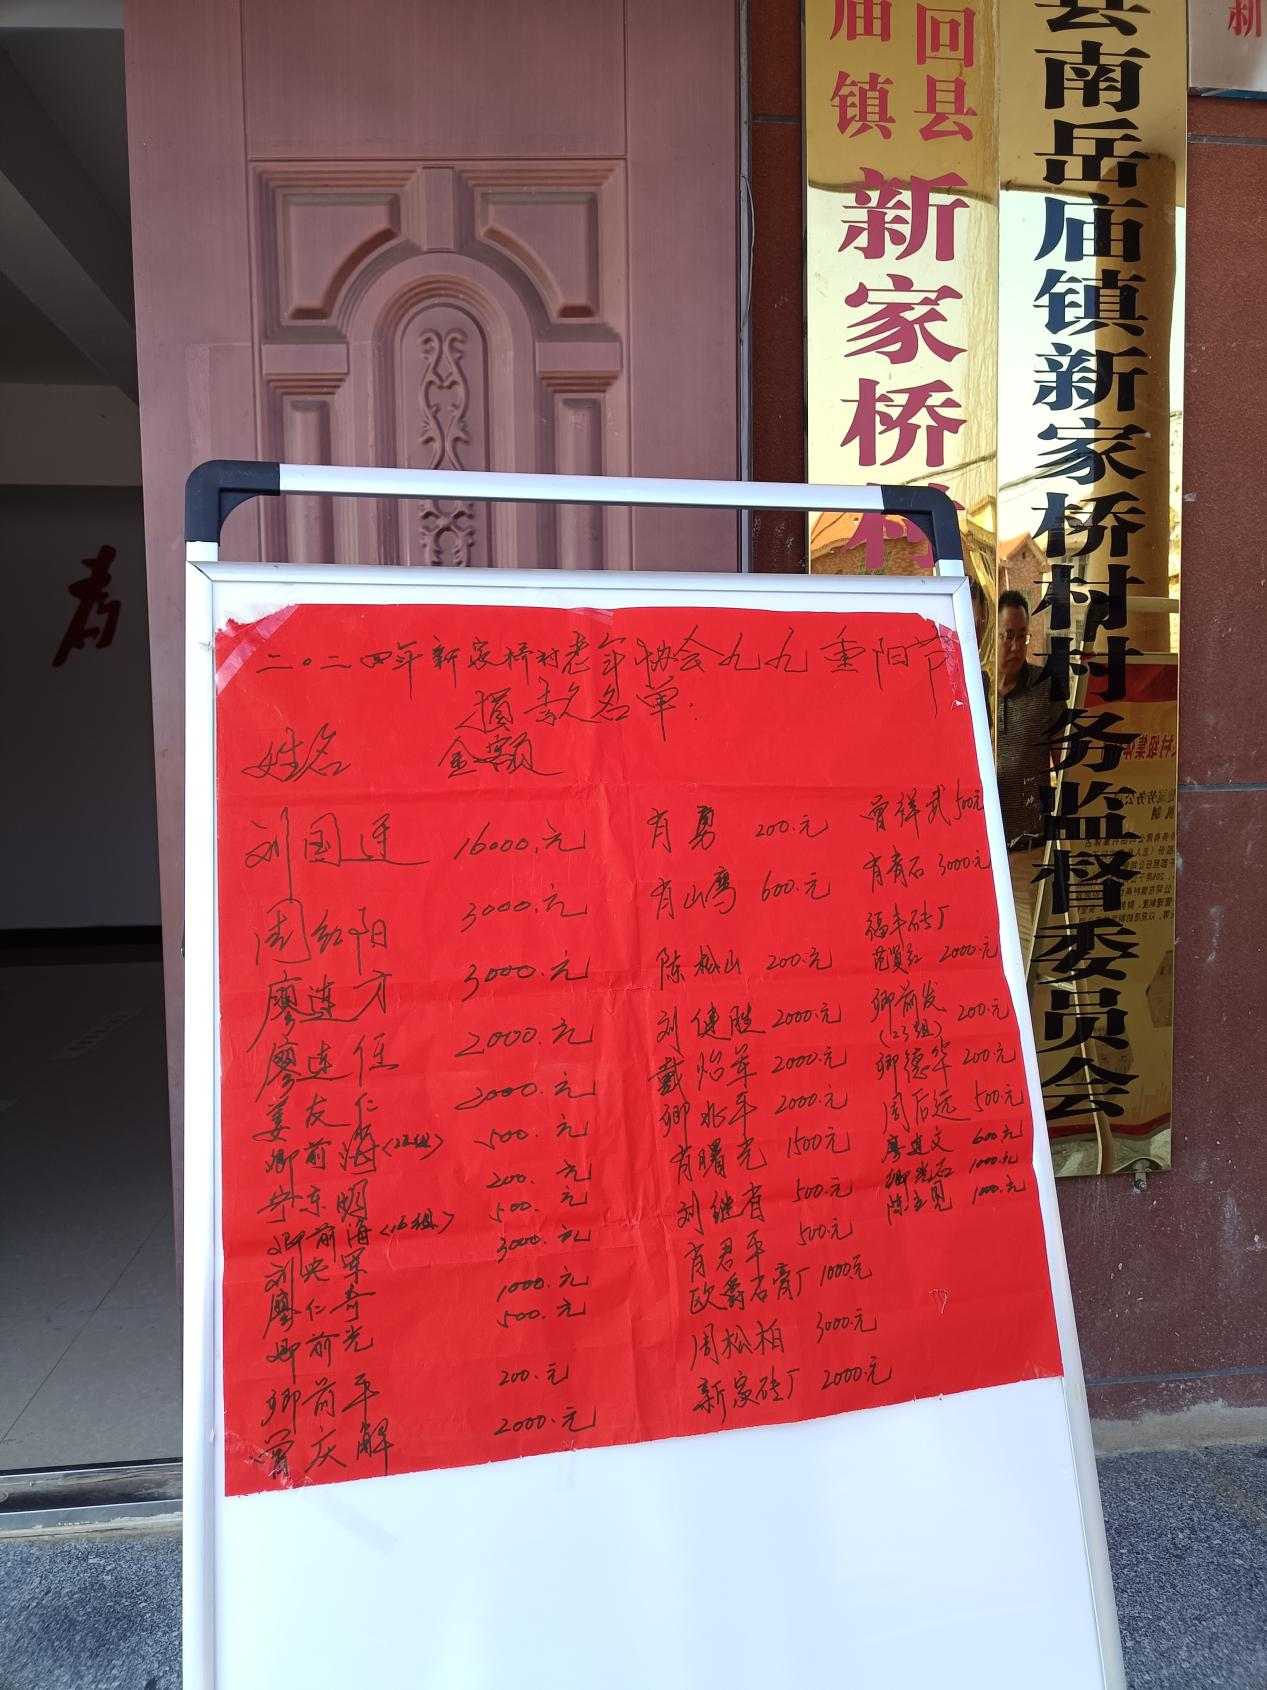 回县
庙镇
新家桥村
县南岳庙镇新家桥村村务监督委员会
新
孝
二〇二四年新家桥村老年协会九九重阳节
捐款名单:
姓名 金额
刘国连 16000.元
周红阳 3000.元
廖连方 3000.元
廖连任 2000.元
姜友仁 2000.元
卿前海<12组> 500.元
宁东明 200.元
卿前海<16组> 500.元
刘央军 3000.元
廖仁奇 1000.元
卿前光 500.元
卿前平 200.元
曾庆解 2000.元
肖勇 200.元
肖山鹰 600.元
陈松山 200.元
刘健胜 2000.元
戴怡军 2000.元
卿水平 2000.元
肖曙光 1500元
刘继肖 500.元
肖君平 500.元
欧爵石膏厂 1000元
周松柏 3000.元
新家砖厂 2000.元
曾祥武 500元
肖青石 3000.元
福丰砖厂
范贤红 2000.元
卿前发
(23组) 200.元
卿德华 200.元
周后远 500.元
廖连文 600.元
卿光石 1000.元
陈立见 1000.元